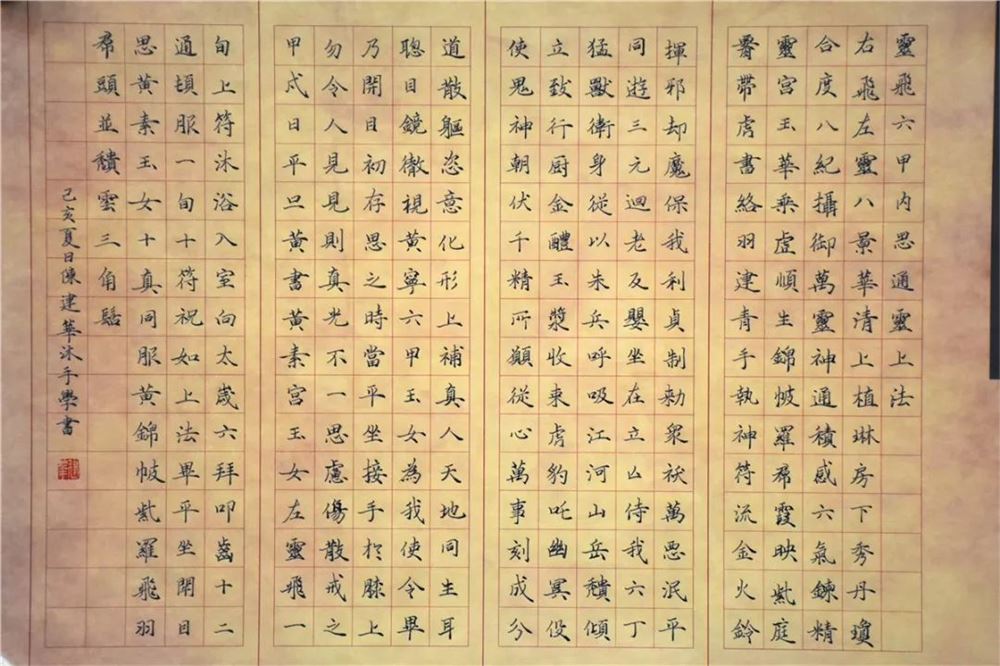 靈飛六甲内思通靈上法
右飛左靈八景華清上植琳房下秀丹瓊
合度八紀攝御萬靈神通積感六氣鍊精
靈宫玉華乘虚順生錦帔羅帬霞映紫庭
腰帶虎書絡羽建青手執神符流金火鈴
揮邪却魔保我利貞制勑衆祅萬惡泯平
同遊三元迴老反嬰坐在立亡侍我六丁
猛獸衛身從以朱兵呼吸江河山岳穨傾
立致行厨金醴玉漿收束虎豹吒幽冥役
使鬼神朝伏千精所願從心萬事刻成分
道散軀恣意化形上補真人天地同生耳
聰目鏡徹視黄寧六甲玉女為我使令畢
乃開目初存思之時當平坐接手於膝上
勿令人見見則真光不一思慮傷散戒之
甲戌日平旦黄書黄素宫玉女左靈飛一
旬上符沐浴入室向太歲六拜叩齒十二
通頓服一旬十符祝如上法畢平坐閉目
思黄素玉女十真同服黄錦帔紫羅飛羽
帬頭並穨雲三角髻
己亥夏日陳建華沐手學書